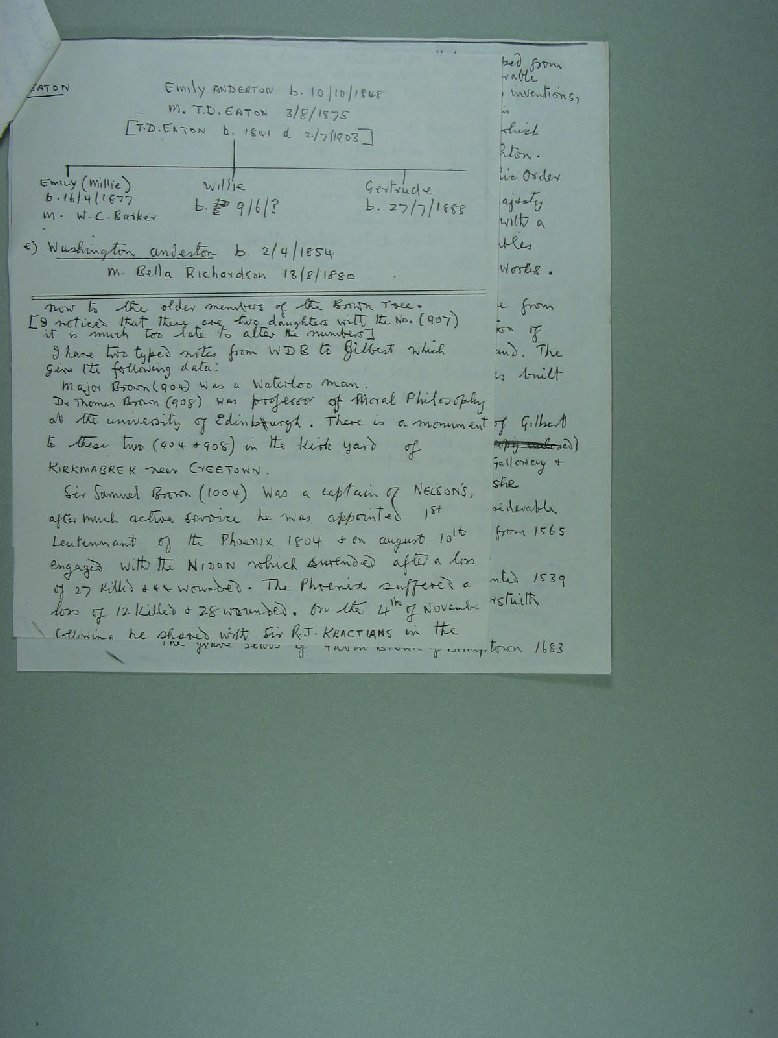 EATON
Emily ANDERTON b. 10/10/1848
m. T.D. EATON 3/8/1875
[T.D. EATON b. d 2/7/1903]
Emily (Millie) Willie Gertrude
b. 16/4/1877 b. 9/6/? b. 27/7/1888
m. W.C. Barker
e) Washington Anderton b. 2/4/1854
m. Bella Richardson 18/8/1880
Now to the older members of the Brown Tree.
[I noticed that there are two daughters with the No. (907)
it is much too late to alter the numbers]
I have two typed notes from WDB to Gilbert which
give the following data:
Major Brown (904) was a Waterloo man.
Dr Thomas Brown (908) was professor of Moral Philosophy
at the university of Edinburgh. There is a monument
to these two (904 + 908) in the Kirk yard of
KIRKMABREK near CREETOWN.
Sir Samuel Brown (1004) was a captain of NELSON'S,
after much active service he was appointed 1st
Leutennant of the Phoenix 1804 + on august 10th
engaged with the NIDON which surended after a loss
of 27 killed + 44 wounded. The Phoenix suffered a
loss of 12 killed + 28 wounded. On the 4th of Novembe
following he shared with Sir R.J. KRACTIANS in the
ped from
rable
inventions,
which
hton.
ic Order
ajesty
with a
bles
works.
e from
ion of
and. The
es built
of Gilbert
Galloway +
she
siderable
from 1565
nted 1539
rstuith
town 1683